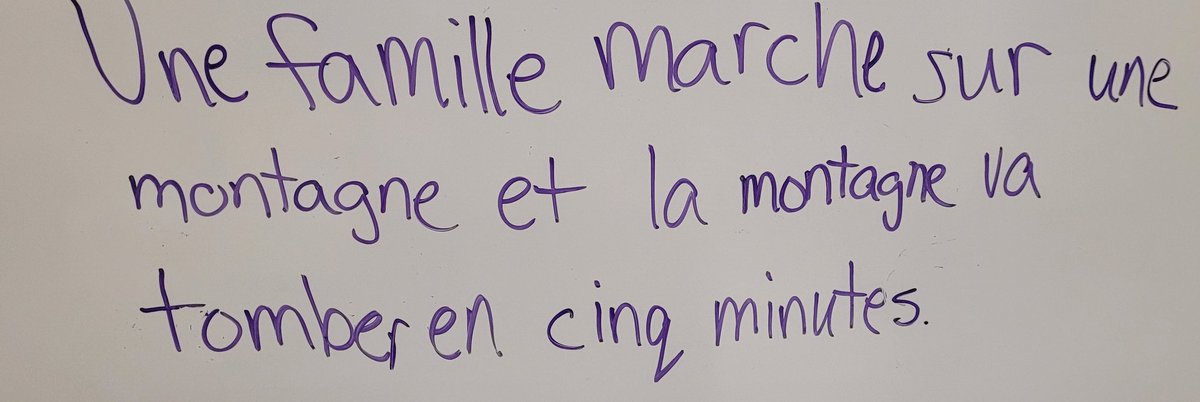 Une famille marche sur une
montagne et la montagne va
tomber en cinq minutes.